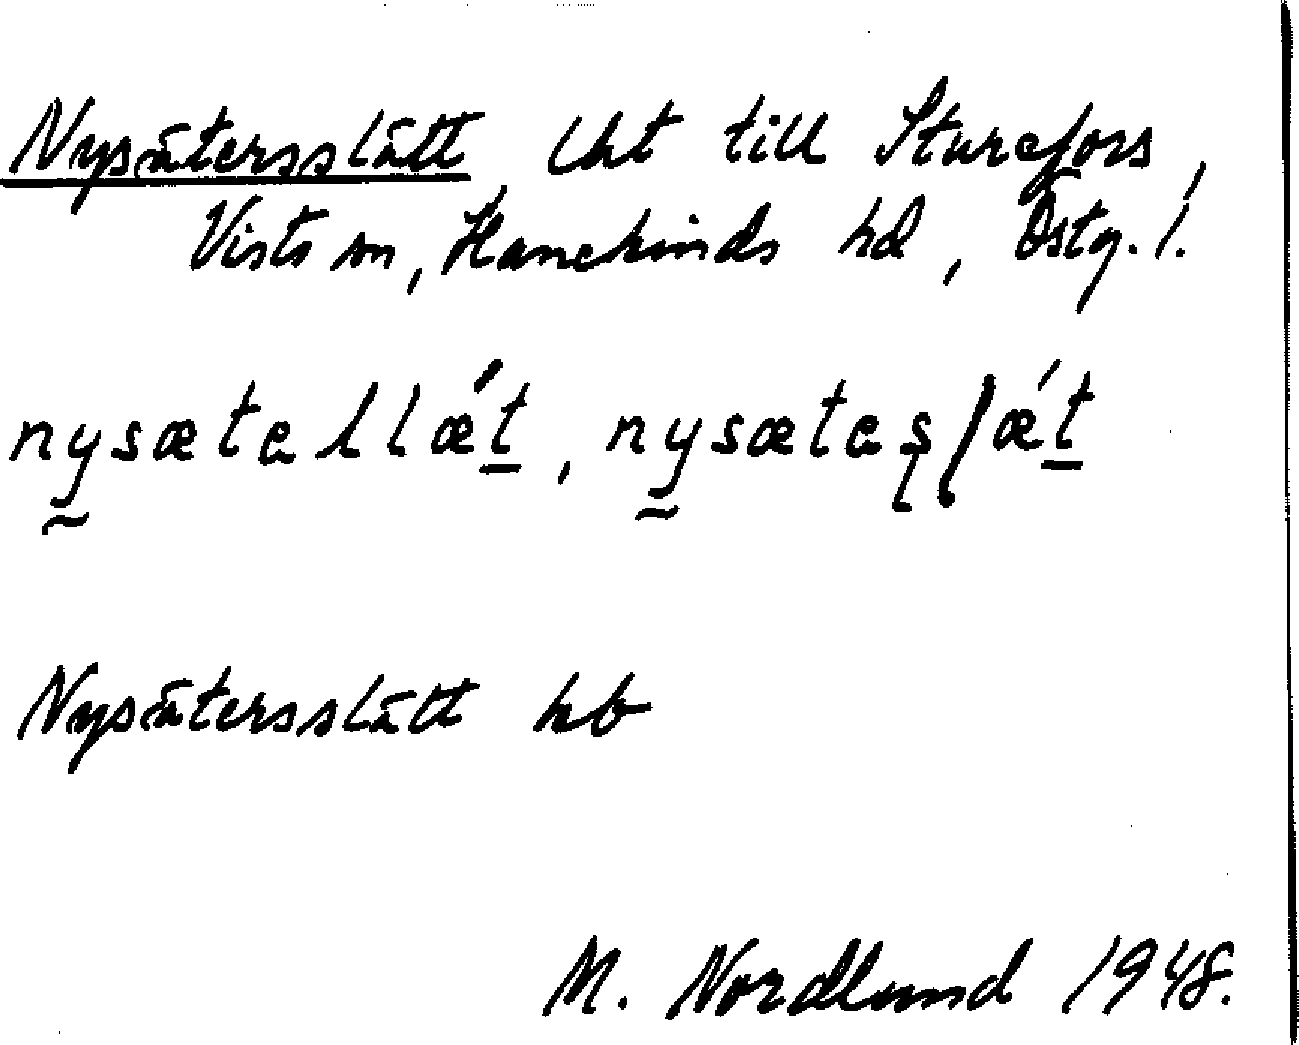 Nysätersslätt lht till Sturefors,
Vists sn, Hanekinds hd, Östg. l.
nysætellǽt, nysæteslǽt
Nysätersslätt hb
M. Nordlund 1948.